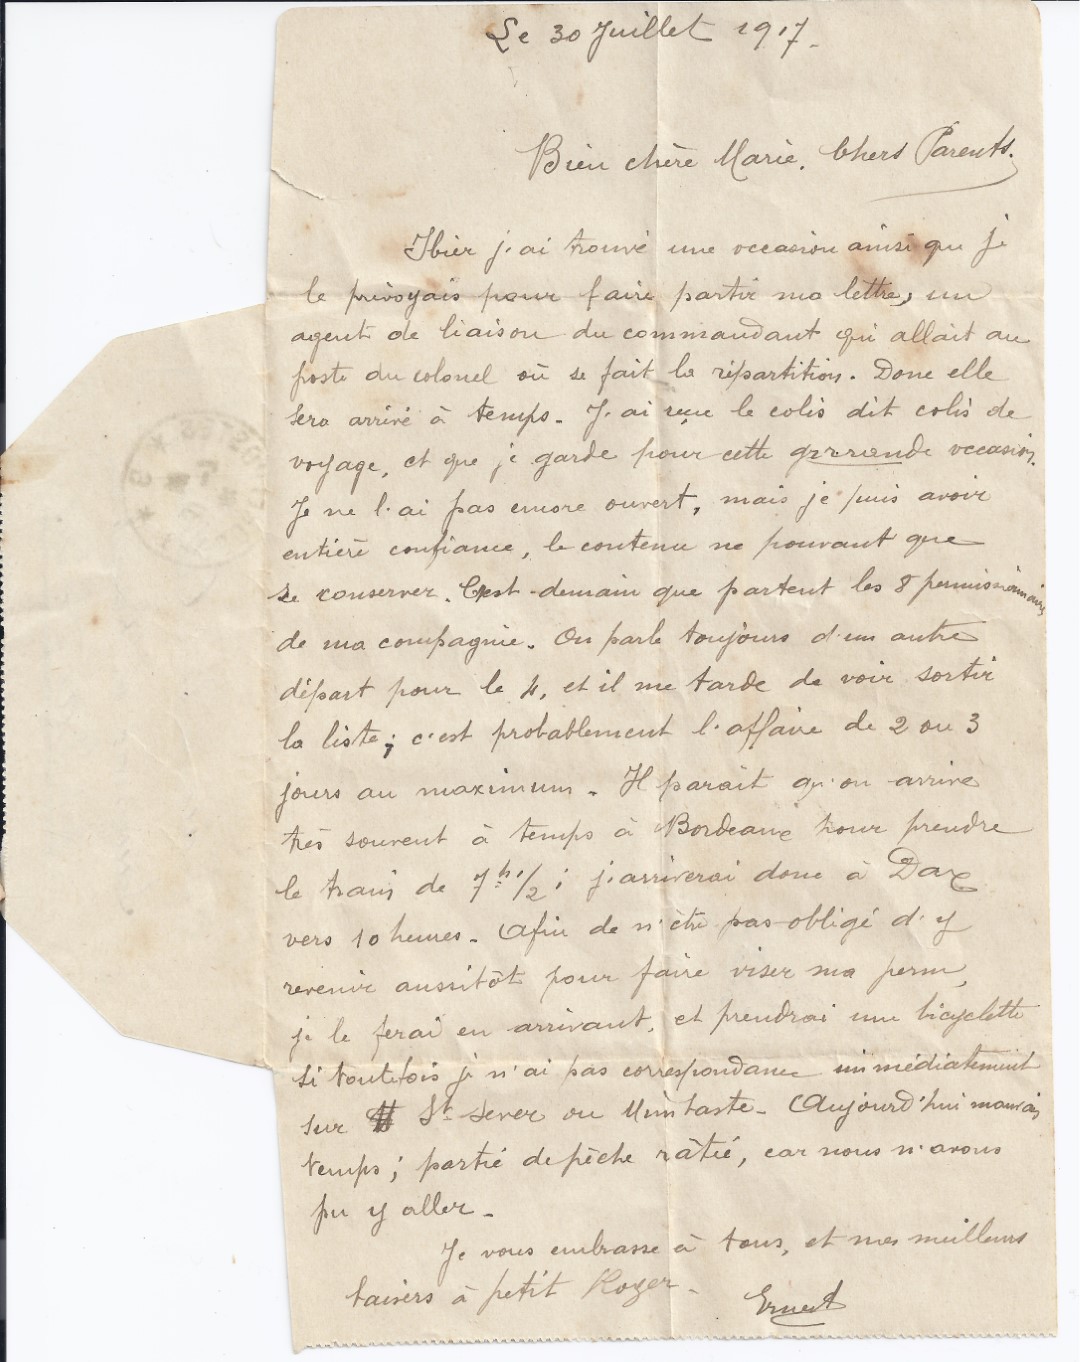 Le 30 Juillet 1917.
Bien chère Marie. Chers Parents.
Hier j'ai trouvé une occasion ainsi que je
le prévoyais pour faire partir ma lettre, un
agent de liaison du commandant qui allait au
poste du colonel où se fait la répartition. Donc elle
sera arrivé à temps. J'ai reçu le colis dit colis de
voyage, et que je garde pour cette grrrande occasion.
Je ne l'ai pas encore ouvert, mais je puis avoir
entière confiance, le contenu ne pouvant que
se conserver. C'est demain que partent les 8 permissionnaires
de ma compagnie. On parle toujours d'un autre
départ pour le 4, et il me tarde de voir sortir
la liste; c'est probablement l'affaire de 2 ou 3
jours au maximum. Il parait qu'on arrive
très souvent à temps à Bordeaux pour prendre
le train de 7h 1/2; j'arriverai donc à Dax
vers 10 heures. Afin de n'être pas obligé d'y
revenir aussitôt pour faire viser ma perm,
je le ferai en arrivant, et prendrai une bicyclette
si toutefois je n'ai pas correspondance immédiatement
sur St Sever ou. Aujourd'hui mauvais
temps; partie de pêche râtié, car nous n'avons
pu y aller.
Je vous embrasse à tous, et mes meilleurs
baisers à petit Roger.
Ernest